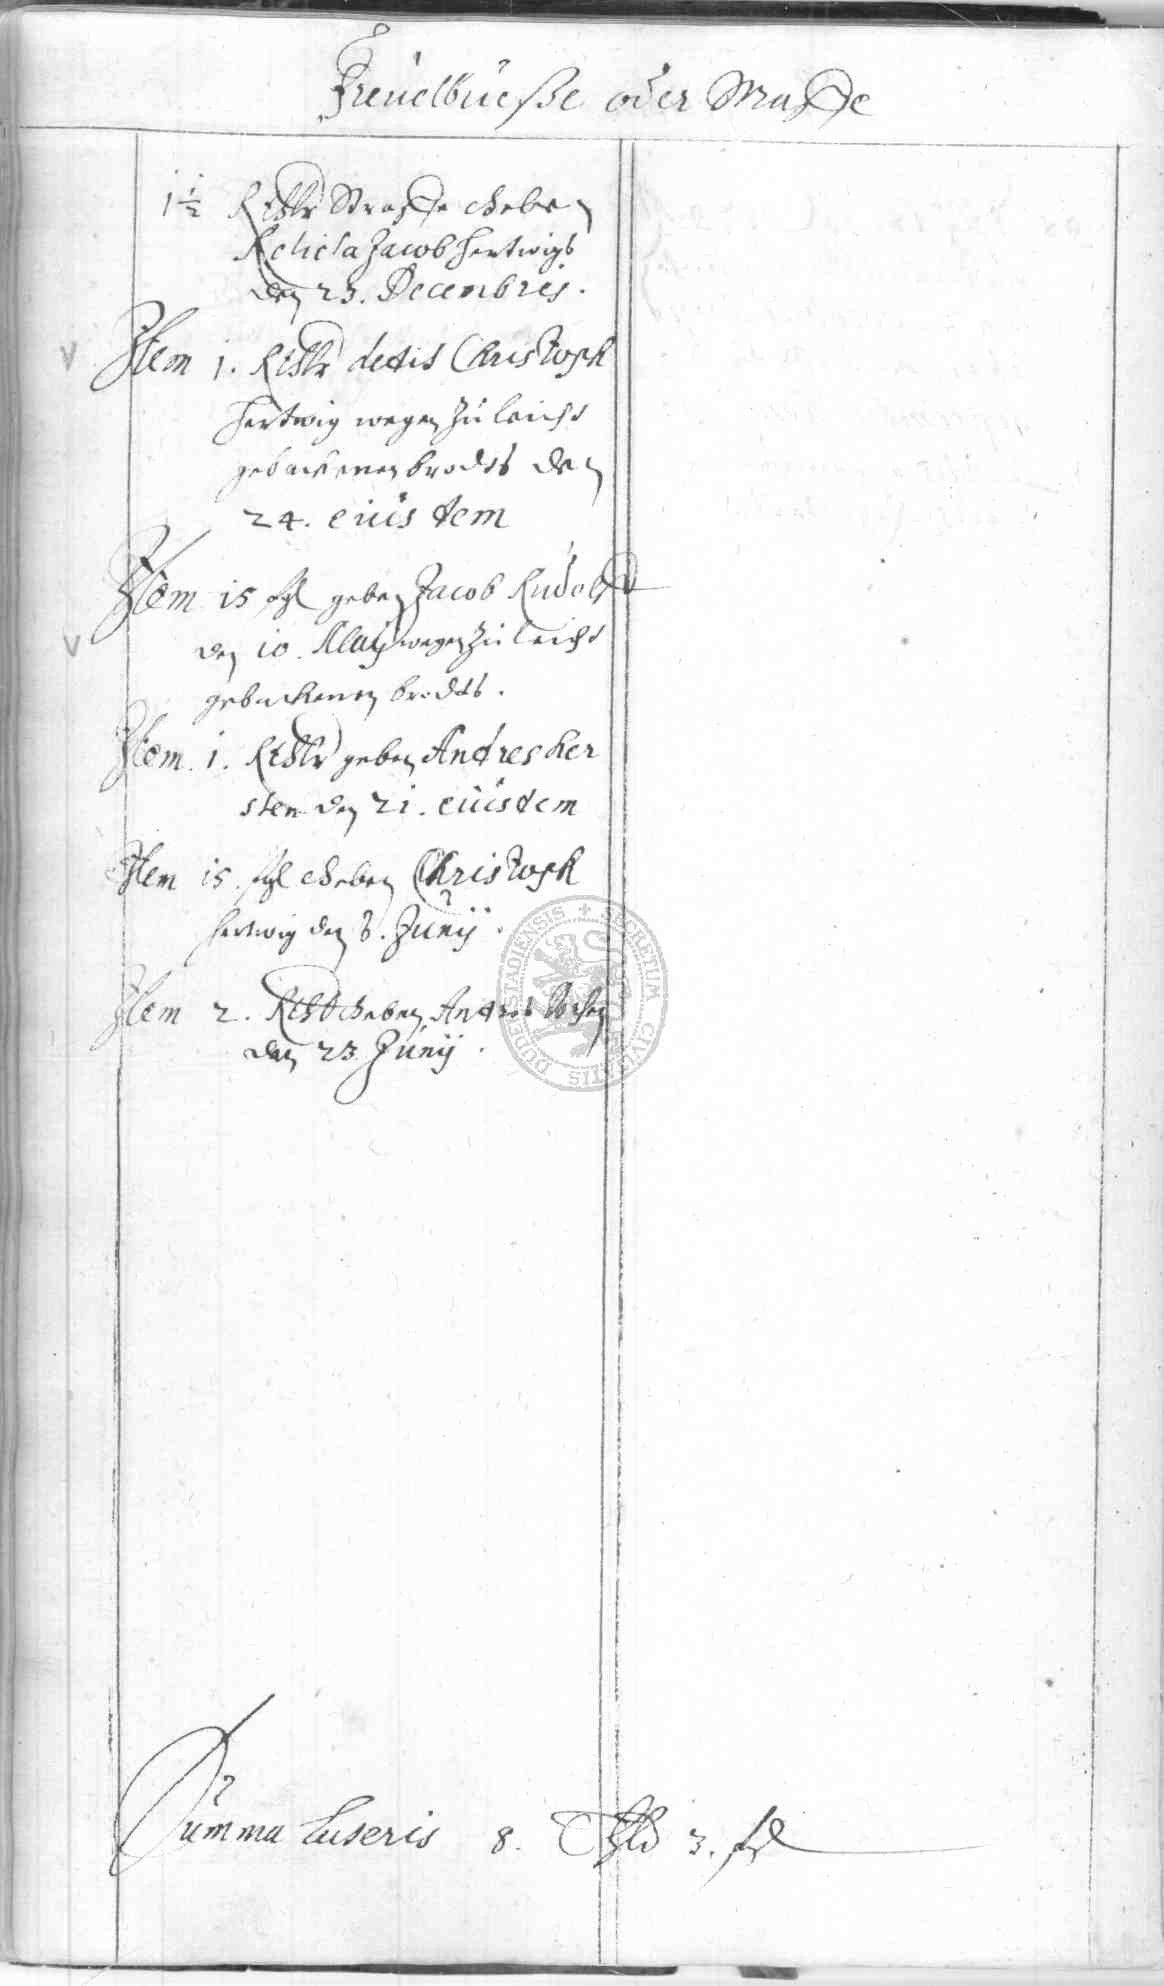 Freuelbueße oder Straffe
1½ Rthlr Straffe Geben
Relicta Jacob Hertwigs
den 23. Decembris.
Item 1. Rthlr dedit Christoph
Hertwig wegen zu leicht
gebackenen brodts den
24. eiusdem
Item 15 ßgl geben Jacob Rudolff
den 10. May wegen zu leicht
gebackenen brodts.
Item 1. Rthlr geben Andres Ker
sten den 21. eiusdem
Item 15. ßgl Geben Christoph
Hertwig den 8. Junij.
Item 2. Rthlr Geben Andres
den 23 Junij.
Summa Lateris 8. Thlr 3. ßgl
SECRETUM CIVITATIS DUDERSTADIENSIS